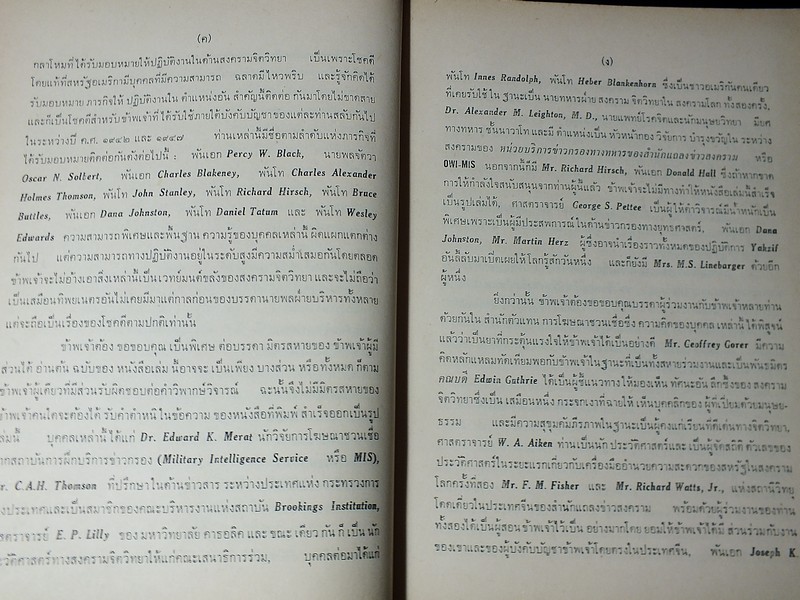 (ค)
กลาโหมที่ได้รับมอบหมายให้ปฏิบัติงานในด้านสงครามจิตวิทยา เป็นเพราะโชคดี
โดยแท้ที่สหรัฐอเมริกามีบุคคลที่มีความสามารถ ฉลาดมีไหวพริบ และรู้จักคิดได้
รับมอบหมาย ภารกิจให้ ปฏิบัติงานใน ตำแหน่งอัน สำคัญนี้ติดต่อ กันมาโดยไม่ขาดสาย
และก็เป็นโชคดีสำหรับข้าพเจ้าที่ ได้รับใช้ภายใต้บังคับบัญชาของแต่ละท่านสลับกันไป
ในระหว่างปี ค.ศ. ๑๙๔๒ และ ๑๙๔๗ ท่านเหล่านี้มีชื่อตามลำดับแห่งภารกิจที่
ได้รับมอบหมายติดต่อกันดังต่อไปนี้ : พันเอก Percy W. Black, นายพลจัตวา
Oscar N. Solbert, พันเอก Charles Blakeney, พันโท Charles Alexander
Holmes Thomson, พันโท John Stanley, พันโท Richard Hirsch, พันโท Bruce
Buttles, พันเอก Dana Johnston, พันโท Daniel Tatum และ พันโท Wesley
Edwards ความสามารถพิเศษและพื้นฐาน ความรู้ของบุคคลเหล่านี้ ผิดแผกแตกต่าง
กันไป แต่ความสามารถทางปฏิบัติงานอยู่ในระดับสูงมีความสม่ำเสมอกันโดยตลอด
ข้าพเจ้าจะไม่อ้างเอาสิ่งเหล่านี้เป็นเวทย์มนต์ขลังของสงครามจิตวิทยา และจะไม่ถือว่า
เป็นเสมือนทิพยเนตรอันไม่เคยมีมาแต่กาลก่อนของบรรดานายพลฝ่ายบริหารทั้งหลาย
แต่จะถือเป็นเรื่องของโชคดีตามปกติเท่านั้น
ข้าพเจ้าต้อง ขอขอบคุณ เป็นพิเศษ ต่อบรรดา มิตรสหายของ ข้าพเจ้าผู้มี
ส่วนได้ อ่านต้น ฉบับของ หนังสือเล่ม นี้อาจจะ เป็นเพียง บางส่วน หรือทั้งหมด ก็ตาม
ข้าพเจ้าผู้เดียวที่มีส่วนรับผิดชอบต่อคำวิพากษ์วิจารณ์ ฉะนั้นจึงไม่มีมิตรสหายของ
ข้าพเจ้าคนใดจะต้องได้ รับคำตำหนิ ในข้อความ ของหนังสือที่พิมพ์ สำเร็จออกเป็นรูป
เล่มนี้ บุคคลเหล่านี้ได้แก่ Dr. Edward K. Merat นักวิจัยการโฆษณาชวนเชื่อ
จากสถาบันการฝึกบริการข่าวกรอง (Military Intelligence Service หรือ MIS),
Dr. C.A.H. Thomson ที่ปรึกษาในด้านข่าวสาร ระหว่างประเทศแห่ง กระทรวงการ
ต่างประเทศและเป็นสมาชิกของคณะบริหารงานแห่งสถาบัน Brookings Institation,
ศาสตราจารย์ E. P. Lilly ของ มหาวิทยาลัย คาธอลิค และ ขณะ เดียว กัน ก็ เป็น นัก
ประวัติศาสตร์ทางสงครามจิตวิทยาให้แก่คณะเสนาธิการร่วม, บุคคลต่อมาได้แก่
(ง)
พันโท Innes Randolph, พันโท Heber Blankenhorn ซึ่งเป็นชาวอเมริกันคนเดียว
ที่เคยรับใช้ ใน ฐานะเป็น นายทหารฝ่าย สงคราม จิตวิทยาใน สงครามโลก ทั้งสองครั้ง,
Dr. Alexander M. Leighton, M. D., นายแพทย์โรคจิตและนักมนุษยวิทยา มียศ
ทางทหาร ชั้นนาวาโท และมี ตำแหน่งเป็น หัวหน้ากอง วิจัยการ บำรุงขวัญใน ระหว่าง
สงครามของ หน่วยบริการข่าวกรองทางทหารของสำนักแถลงข่าวสงคราม หรือ
OWI-MIS นอกจากนี้ก็มี Mr. Richard Hirsch, พันเอก Donald Hall ซึ่งถ้าหากขาด
การให้กำลังใจสนับสนุนจากท่านผู้นี้แล้ว ข้าพเจ้าจะไม่มีทางทำให้หนังสือเล่มนี้สำเร็จ
เป็นรูปเล่มได้, ศาสตราจารย์ George S. Pettee เป็นผู้ให้คำวิจารณ์มีน้ำหนักเป็น
พิเศษเพราะเป็นผู้มีประสพการณ์ในด้านข่าวกรองทางยุทธศาสตร์, พันเอก Dana
Johnston, Mr. Martin Herz ผู้ซึ่งอาจนำเรื่องราวทั้งหมดของปฏิบัติการ Yakzif
อันลี้ลับมาเปิดเผยให้โลกรู้สักวันหนึ่ง และก็ยังมี Mrs. M.S. Linebarger ด้วยอีก
ผู้หนึ่ง
ยิ่งกว่านั้น ข้าพเจ้าต้องขอขอบคุณบรรดาผู้ร่วมงานกับข้าพเจ้าหลายท่าน
ด้วยกันใน สำนักตัวแทน การโฆษณาชวนเชื่อซึ่ง ความคิดของบุคคล เหล่านี้ ได้พิสูจน์
แล้วว่าเป็นยาที่กระตุ้นแรงใจให้ข้าพเจ้าได้เป็นอย่างดี Mr. Geoffrey Gorer มีความ
คิดหลักแหลมทัดเทียมพอกับข้าพเจ้าในฐานะที่เป็นทั้งสหายร่วมงานและเป็นพันธมิตร
คณบดี Edwin Guthrie ได้เป็นผู้ชี้แนวทางให้มองเห็น ทัศนะอัน ลึกซึ้งของ สงคราม
จิตวิทยาซึ่งเป็น เสมือนหนึ่ง กระจกเงาที่ฉายให้ เห็นบุคคลิกของ ผู้ที่เปี่ยมด้วยมนุษย-
ธรรม และมีความสุขุมคัมภีรภาพในฐานะเป็นผู้คงแก่เรียนดีเด่นทางจิตวิทยา,
ศาสตราจารย์ W. A. Aiken ท่านเป็นนัก ประวัติศาสตร์และ เป็นผู้จัดสถิติ ตัวเลขของ
ประวัติศาสตร์ในระยะแรกเกี่ยวกับเครื่องมืออำนวยความสะดวกของสหรัฐในสงคราม
โลกครั้งที่สอง Mr. F. M. Fisher และ Mr. Richard Watts, Jr., แห่งสถานีวิทยุ
โดดเดี่ยวในประเทศจีนของสำนักแถลงข่าวสงคราม พร้อมด้วยผู้ร่วมงานของท่าน
ทั้งสองได้เป็นผู้สอน ข้าพเจ้าไว้เป็น อย่างมากโดย ยอมให้ข้าพเจ้าได้มี ส่วนร่วมกับงาน
ของเขาและของผู้บังคับบัญชาข้าพเจ้าโดยตรงในประเทศจีน, พันเอก Joseph K.